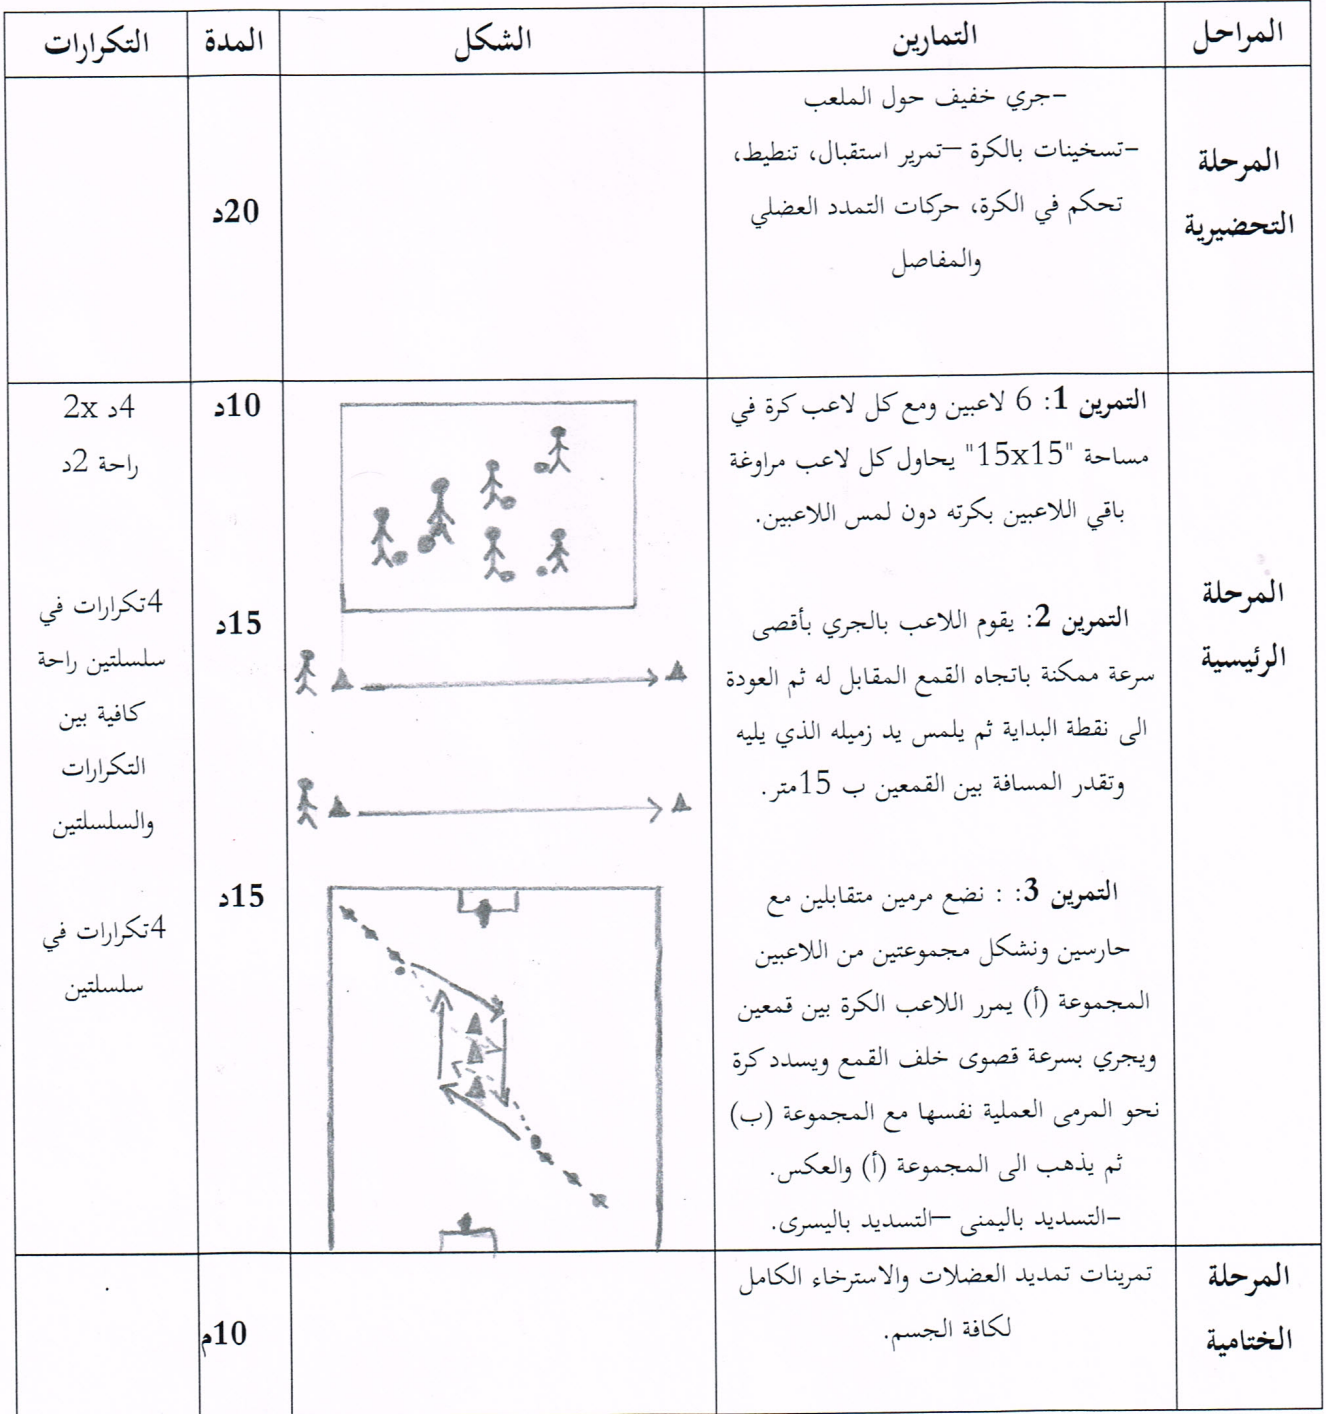 المراحل
التمارين
الشكل
المدة
التكرارات
المرحلة
التحضيرية
-جري خفيف حول الملعب
-تسخينات بالكرة –تمرير استقبال، تنطيط،
تحكم في الكرة، حركات التمدد العضلي
والمفاصل
20د
المرحلة
الرئيسية
التمرين 1: 6 لاعبين ومع كل لاعب كرة في
مساحة "15x15" يحاول كل لاعب مراوغة
باقي اللاعبين بكرته دون لمس اللاعبين.
10د
4د 2x
راحة 2د
التمرين 2: يقوم اللاعب بالجري بأقصى
سرعة ممكنة باتجاه القمع المقابل له ثم العودة
الى نقطة البداية ثم يلمس يد زميله الذي يليه
وتقدر المسافة بين القمعين ب 15متر.
15د
4تكرارات في
سلسلتين راحة
كافية بين
التكرارات
والسلسلتين
التمرين 3: : نضع مرمين متقابلين مع
حارسين ونشكل مجموعتين من اللاعبين
المجموعة (أ) يمرر اللاعب الكرة بين قمعين
ويجري بسرعة قصوى خلف القمع ويسدد كرة
نحو المرمى العملية نفسها مع المجموعة (ب)
ثم يذهب الى المجموعة (أ) والعكس.
-التسديد باليمنى –التسديد باليسرى.
15د
4تكرارات في
سلسلتين
المرحلة
الختامية
تمرينات تمديد العضلات والاسترخاء الكامل
لكافة الجسم.
10م